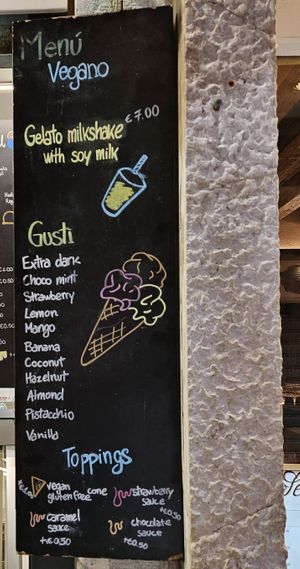 Menú
Vegano
€7.00
Gelato milkshake
with soy milk
Gusti
Extra dark
Choco mint
Strawberry
Lemon
Mango
Banana
Coconut
Hazelnut
Almond
Pistacchio
Vanilla
Toppings
vegan
gluten free cone
strawberry
sauce +€0.50
caramel
sauce
+€0.50
chocolate
sauce
+€0.50